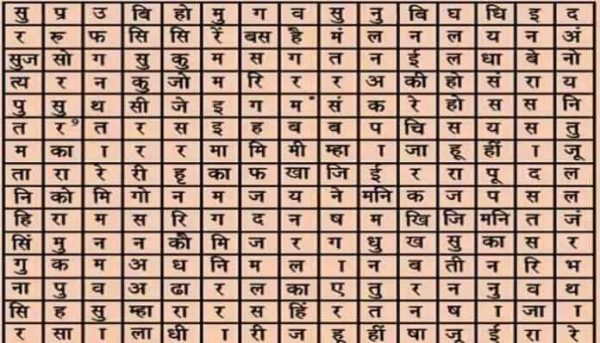 सु प्र उ बि हो मु ग व सु नु बि घ धि इ द
र रु फ सि सि रें बस है मं ल न ल य न अं
सुज सो ग सु कु म स ग त न ई ल धा बे नो
त्य र न कु जो म रि र र अ की हो सं रा य
पु सु थ सी जे इ ग म सं क रे हो स स नि
त र त र स इ ह ब ब प चि स य स तु
म का ा र र मा मि मी म्हा ा जा हू हीं ा जू
ता रा रे री हृ का फ खा जि ई र रा पू द ल
नि को मि गो न म ज य ने मनि क ज प स ल
हि रा म स रि ग द न ष म खि जि मनि त जं
सिं मु न न कौ मि ज र ग धु ख सु का स र
गु क म अ ध नि म ल ा न ब ती न रि भ
ना पु व अ ढा र ल का ए तु र न नु व थ
सि ह सु म्हा रा र स हिं र त न ष ा जा ा
र सा ा ला धी ा री ज हू हीं षा जू ई रा रे